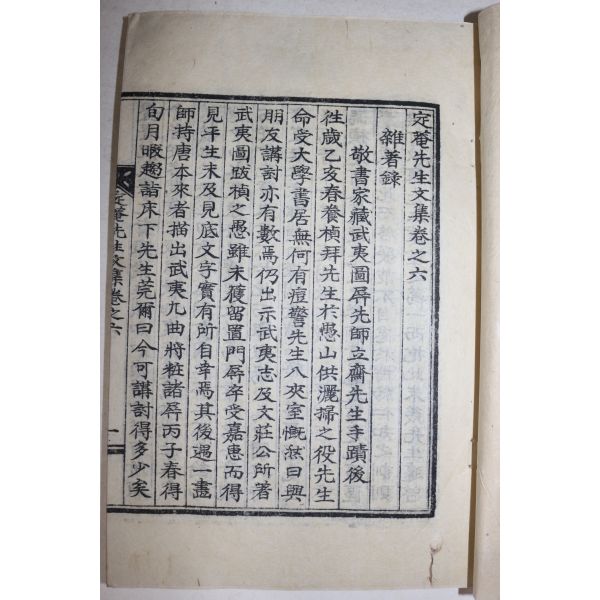 定庵先生文集卷之六
雜著錄
敬書家藏武夷圖屛先師立齋先生手蹟後
徃歲乙亥春養楨拜先生於愚山供灑掃之役先生
命受大學書居無何有痘警先生入夾室慨然曰與
朋友講討亦有數焉仍出示武夷志及文莊公所著
武夷圖跋楨之愚雖未獲留置門屛卒受嘉惠而得
見平生未及見底文字實有所自幸焉其後遇一畫
師持唐本來者描出武夷九曲將粧諸屛丙子春得
旬月暇趨詣床下先生莞爾曰今可講討得多少矣
定庵先生文集卷之六
一